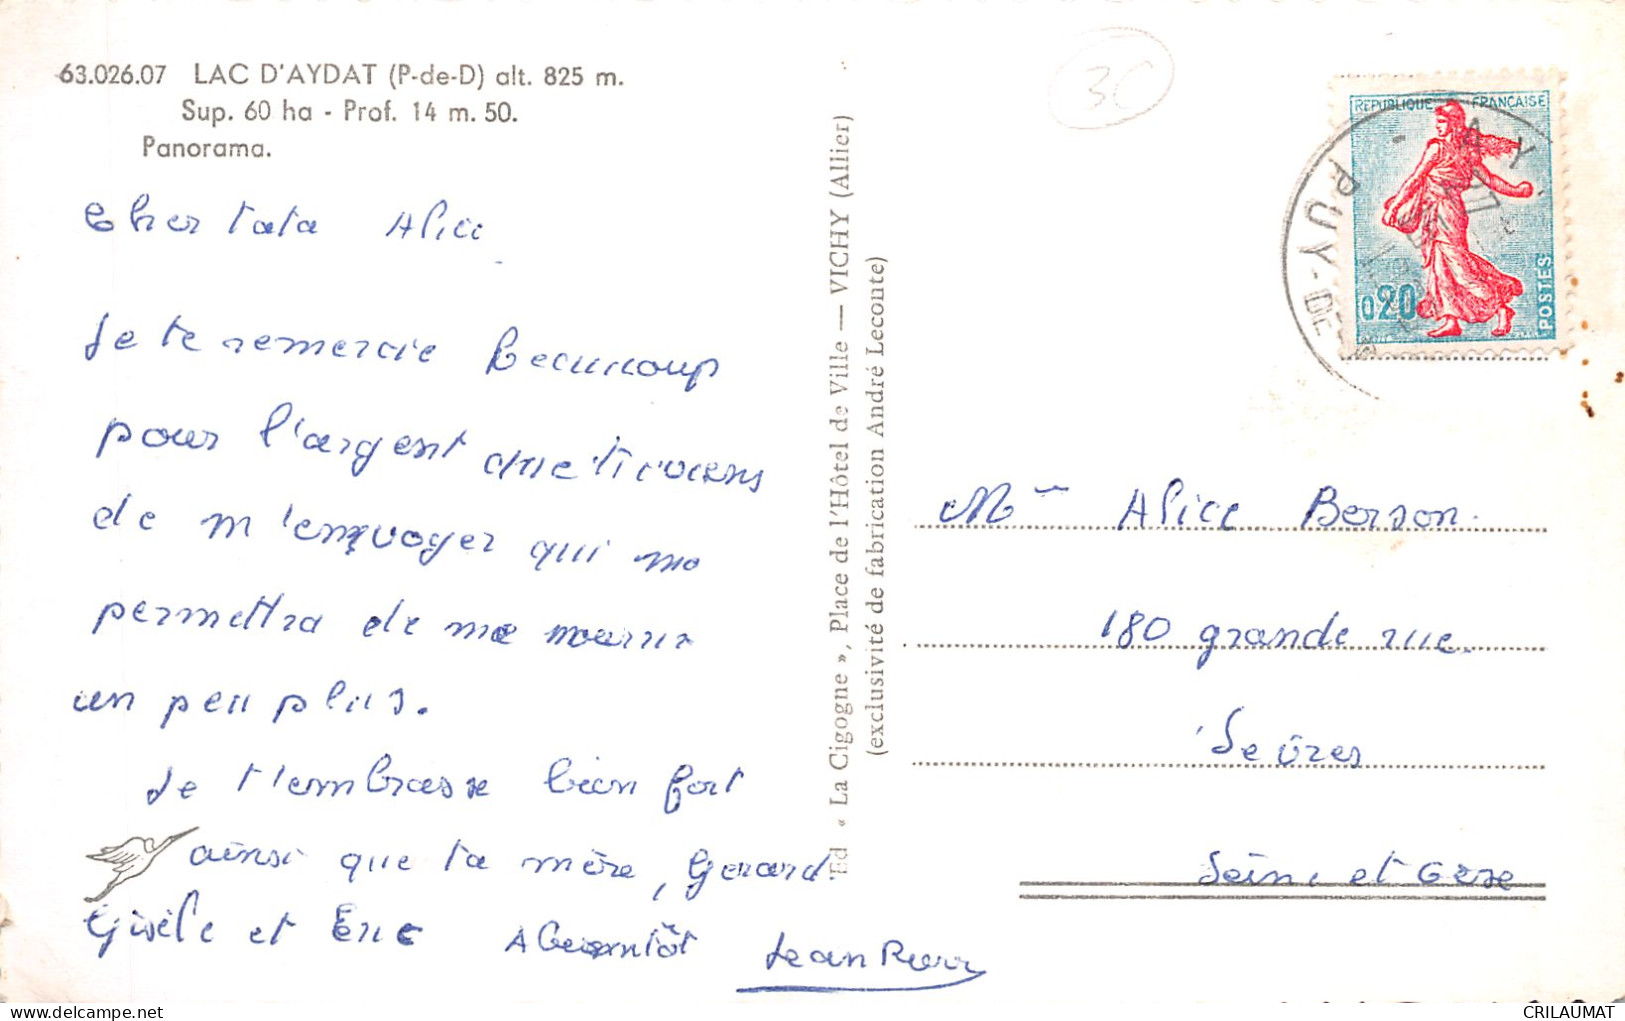 63.026.07 LAC D'AYDAT (P-de-D) alt. 825 m.
Sup. 60 ha - Prof. 14 m. 50.
Panorama.
Cher tata Alice
Je te remercie beaucoup
pour l'argent que tu viens
de m'envoyer qui me
permettra de me nourrir
un peu plus.
Je t'embrasse bien fort
ainsi que ta mère, Gerard.
Gisèle et Eric A bientôt Jean Pierre
Ed « La Cigogne », Place de l'Hôtel de Ville — VICHY (Allier)
(exclusivité de fabrication André Leconte)
3C
REPUBLIQUE FRANÇAISE
0,20
POSTES
AY
PUY-DE
Mme Alice Berson.
180 grande rue.
Sèvres
Seine et Oise
CRILAUMAT